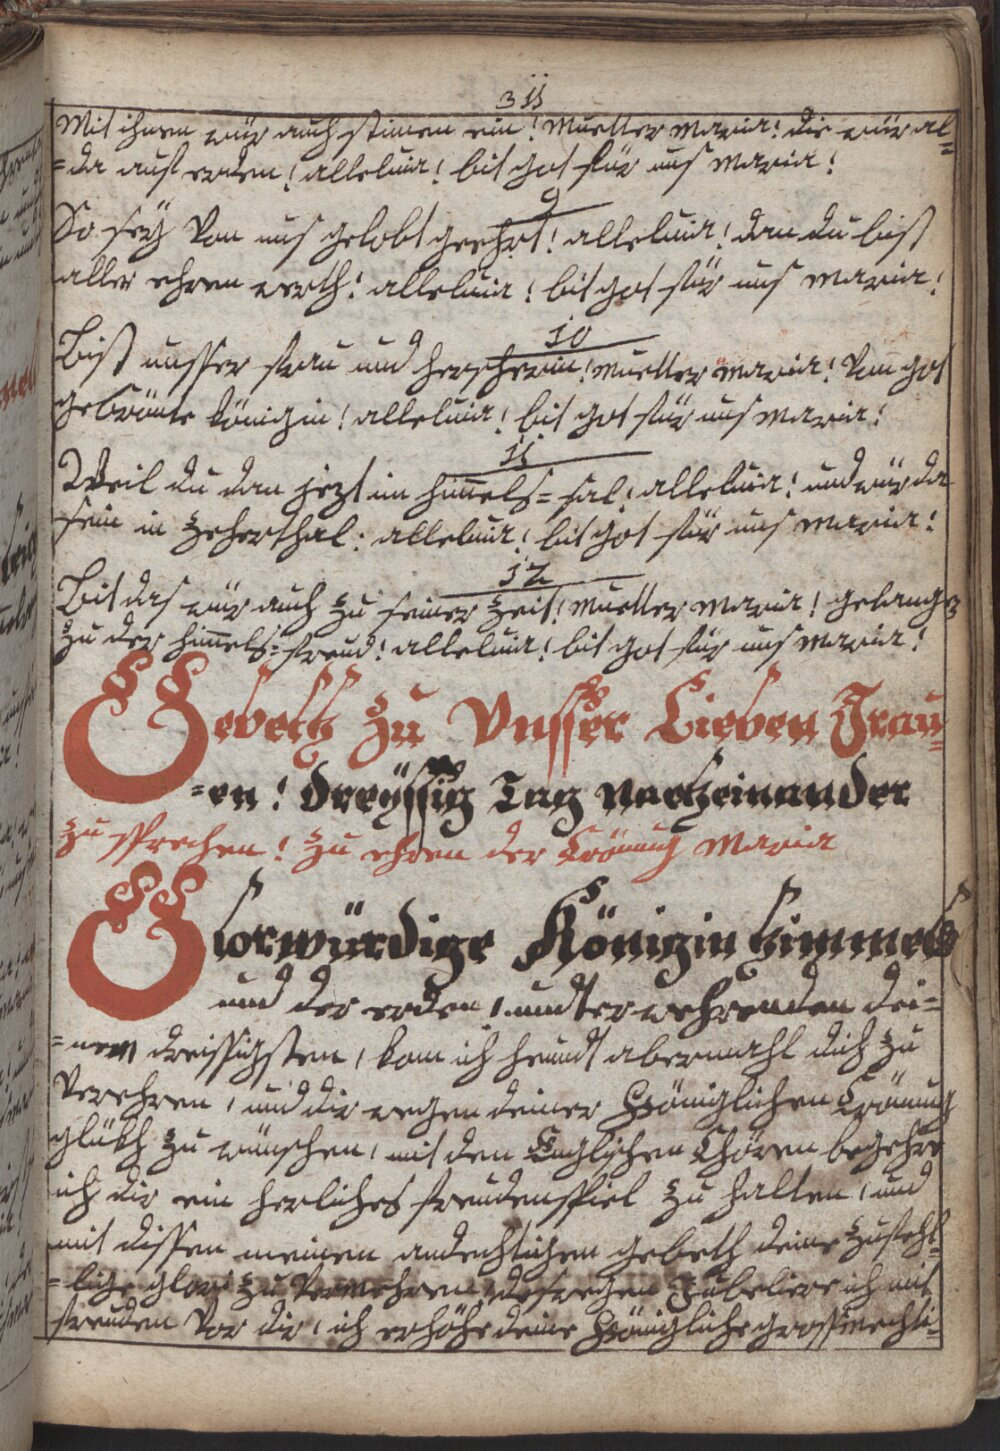 311
Mit ihnen wür auch stimen ein! Muetter Maria! die wür al-
=da auf erden! alleluia! bit got für uns Maria!
9
So seÿ Von uns gelobt geehrt! alleluia! dan du bist
aller ehren werth! alleluia! bit got für uns Maria!
10
Bist unsser frau und herscherin! Muetter Maria! Von got
gekrönte königin! alleluia! bit got für uns Maria!
11
Weil du dan jezt im himels=sal! alleluia! und wür da
sein in Zeherthal: alleluia! bit got für uns Maria!
12
Bit das wür auch zu seiner Zeit! Muetter Maria! gelangen
zu der himels=freud! alleluia! bit got für uns Maria!
Gebett zu Unsser Lieben Frau=
=en! dreÿssig Tag nacheinander
zu sprechen! zu ehren der Crönung Maria
Glorwürdige Königin himmels
und der erden, undter wehrenden dei=
=nem dreissigsten, kom ich heundt abermahl dich zu
Verehren, und dir wegen deiner Königlichen Crönung
glükh zu wünschen, mit den Englischen Chören begehre
ich dir ein herliches freudenspiel zu halten, und
mit dissen meinen andechtichen gebeth deine zufehl=
=lige glori zu Vermehren, deswegen Jubeliere ich mit
freuden Vor dir, ich erhöhe deine Königliche grossmechti=